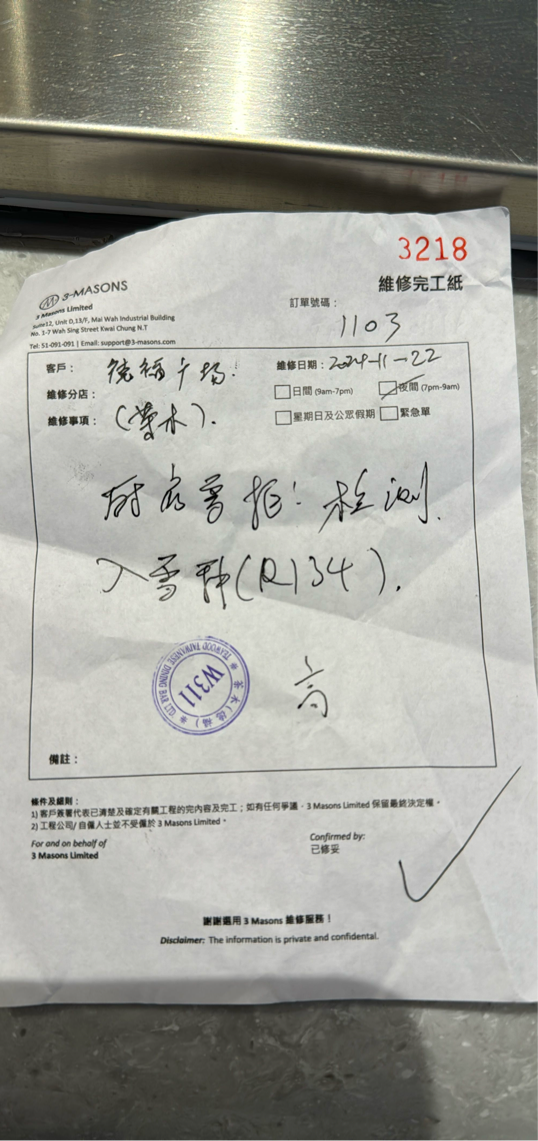 3218
3-MASONS
維修完工紙
3 Masons Limited
Suite12, Unit D,13/F, Mai Wah Industrial Building
No. 1-7 Wah Sing Street Kwai Chung N.T
Tel: 51-091-091 | Email: support@3-masons.com
訂單號碼：
1103
客戶： 德福广场.
維修日期： 2024-11-22
維修分店：
日間 (9am-7pm) 夜間 (7pm-9am)
維修事項： (茶木).
星期日及公眾假期 緊急單
檢測.
入雪种(R134).
TEAWOOD TAIWANESE DINING BAR
茶木(德福)
W311
高
備註：
條件及細則：
1) 客戶簽署代表已清楚及確定有關工程的完內容及完工；如有任何爭議，3 Masons Limited 保留最終決定權。
2) 工程公司/ 自僱人士並不受僱於 3 Masons Limited。
For and on behalf of
3 Masons Limited
Confirmed by:
已修妥
謝謝選用 3 Masons 維修服務！
Disclaimer: The information is private and confidental.